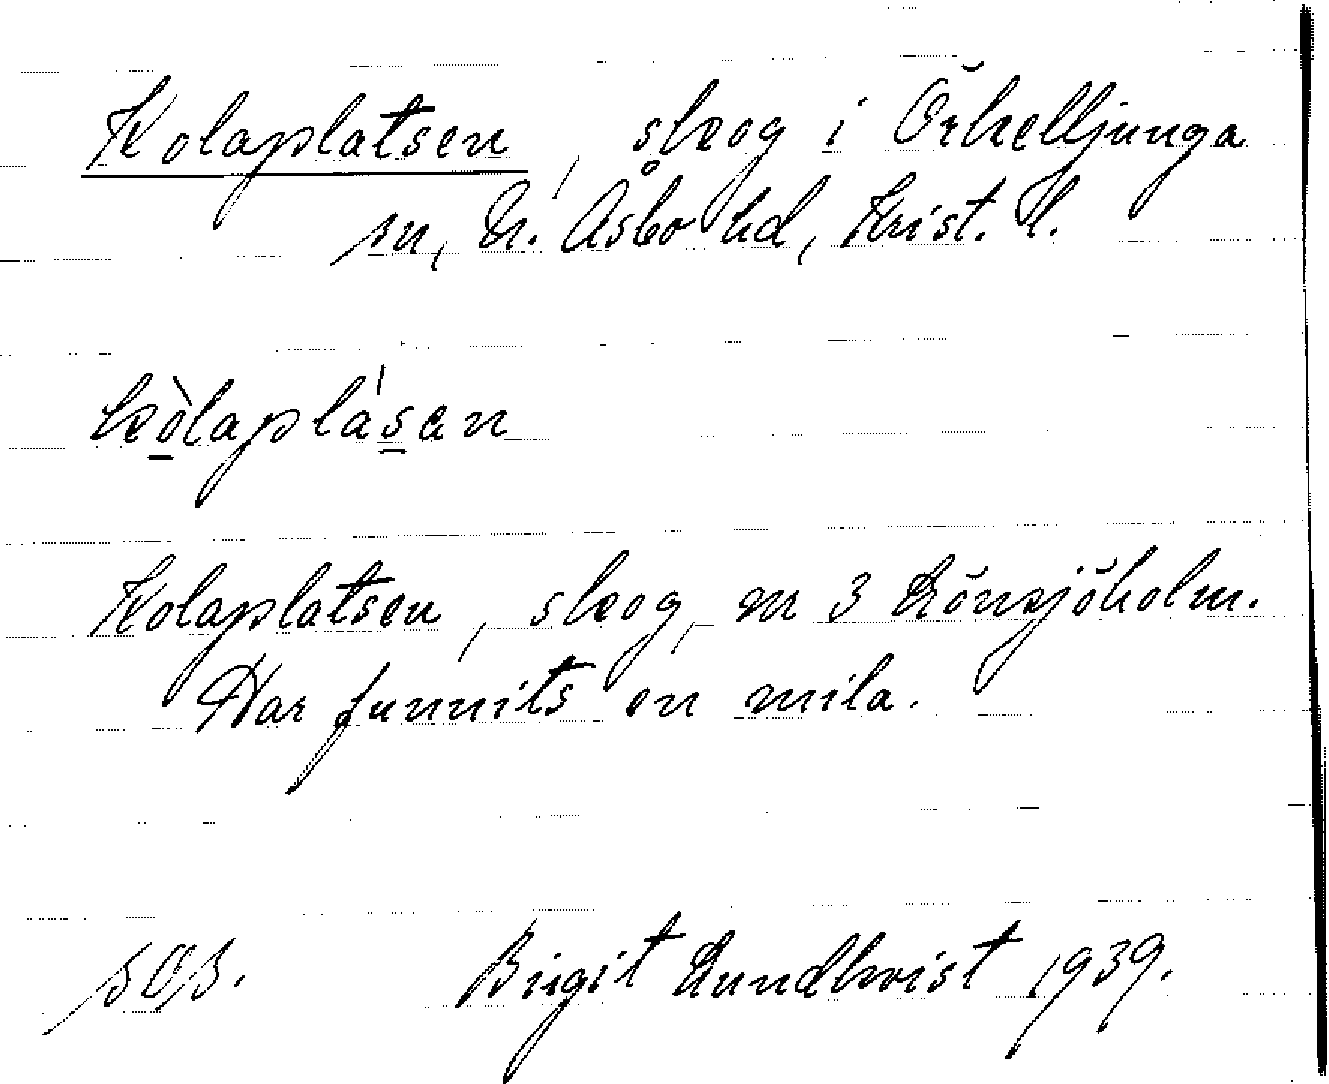 Kolaplatsen, skog i Örkelljunga
sn, N. Åsbo hd, Krist. l.
kòlaplásan
Kolaplatsen, skog, m 3 Lönsjöholm.
Har funnits en mila.
Birgit Lundkvist 1939.